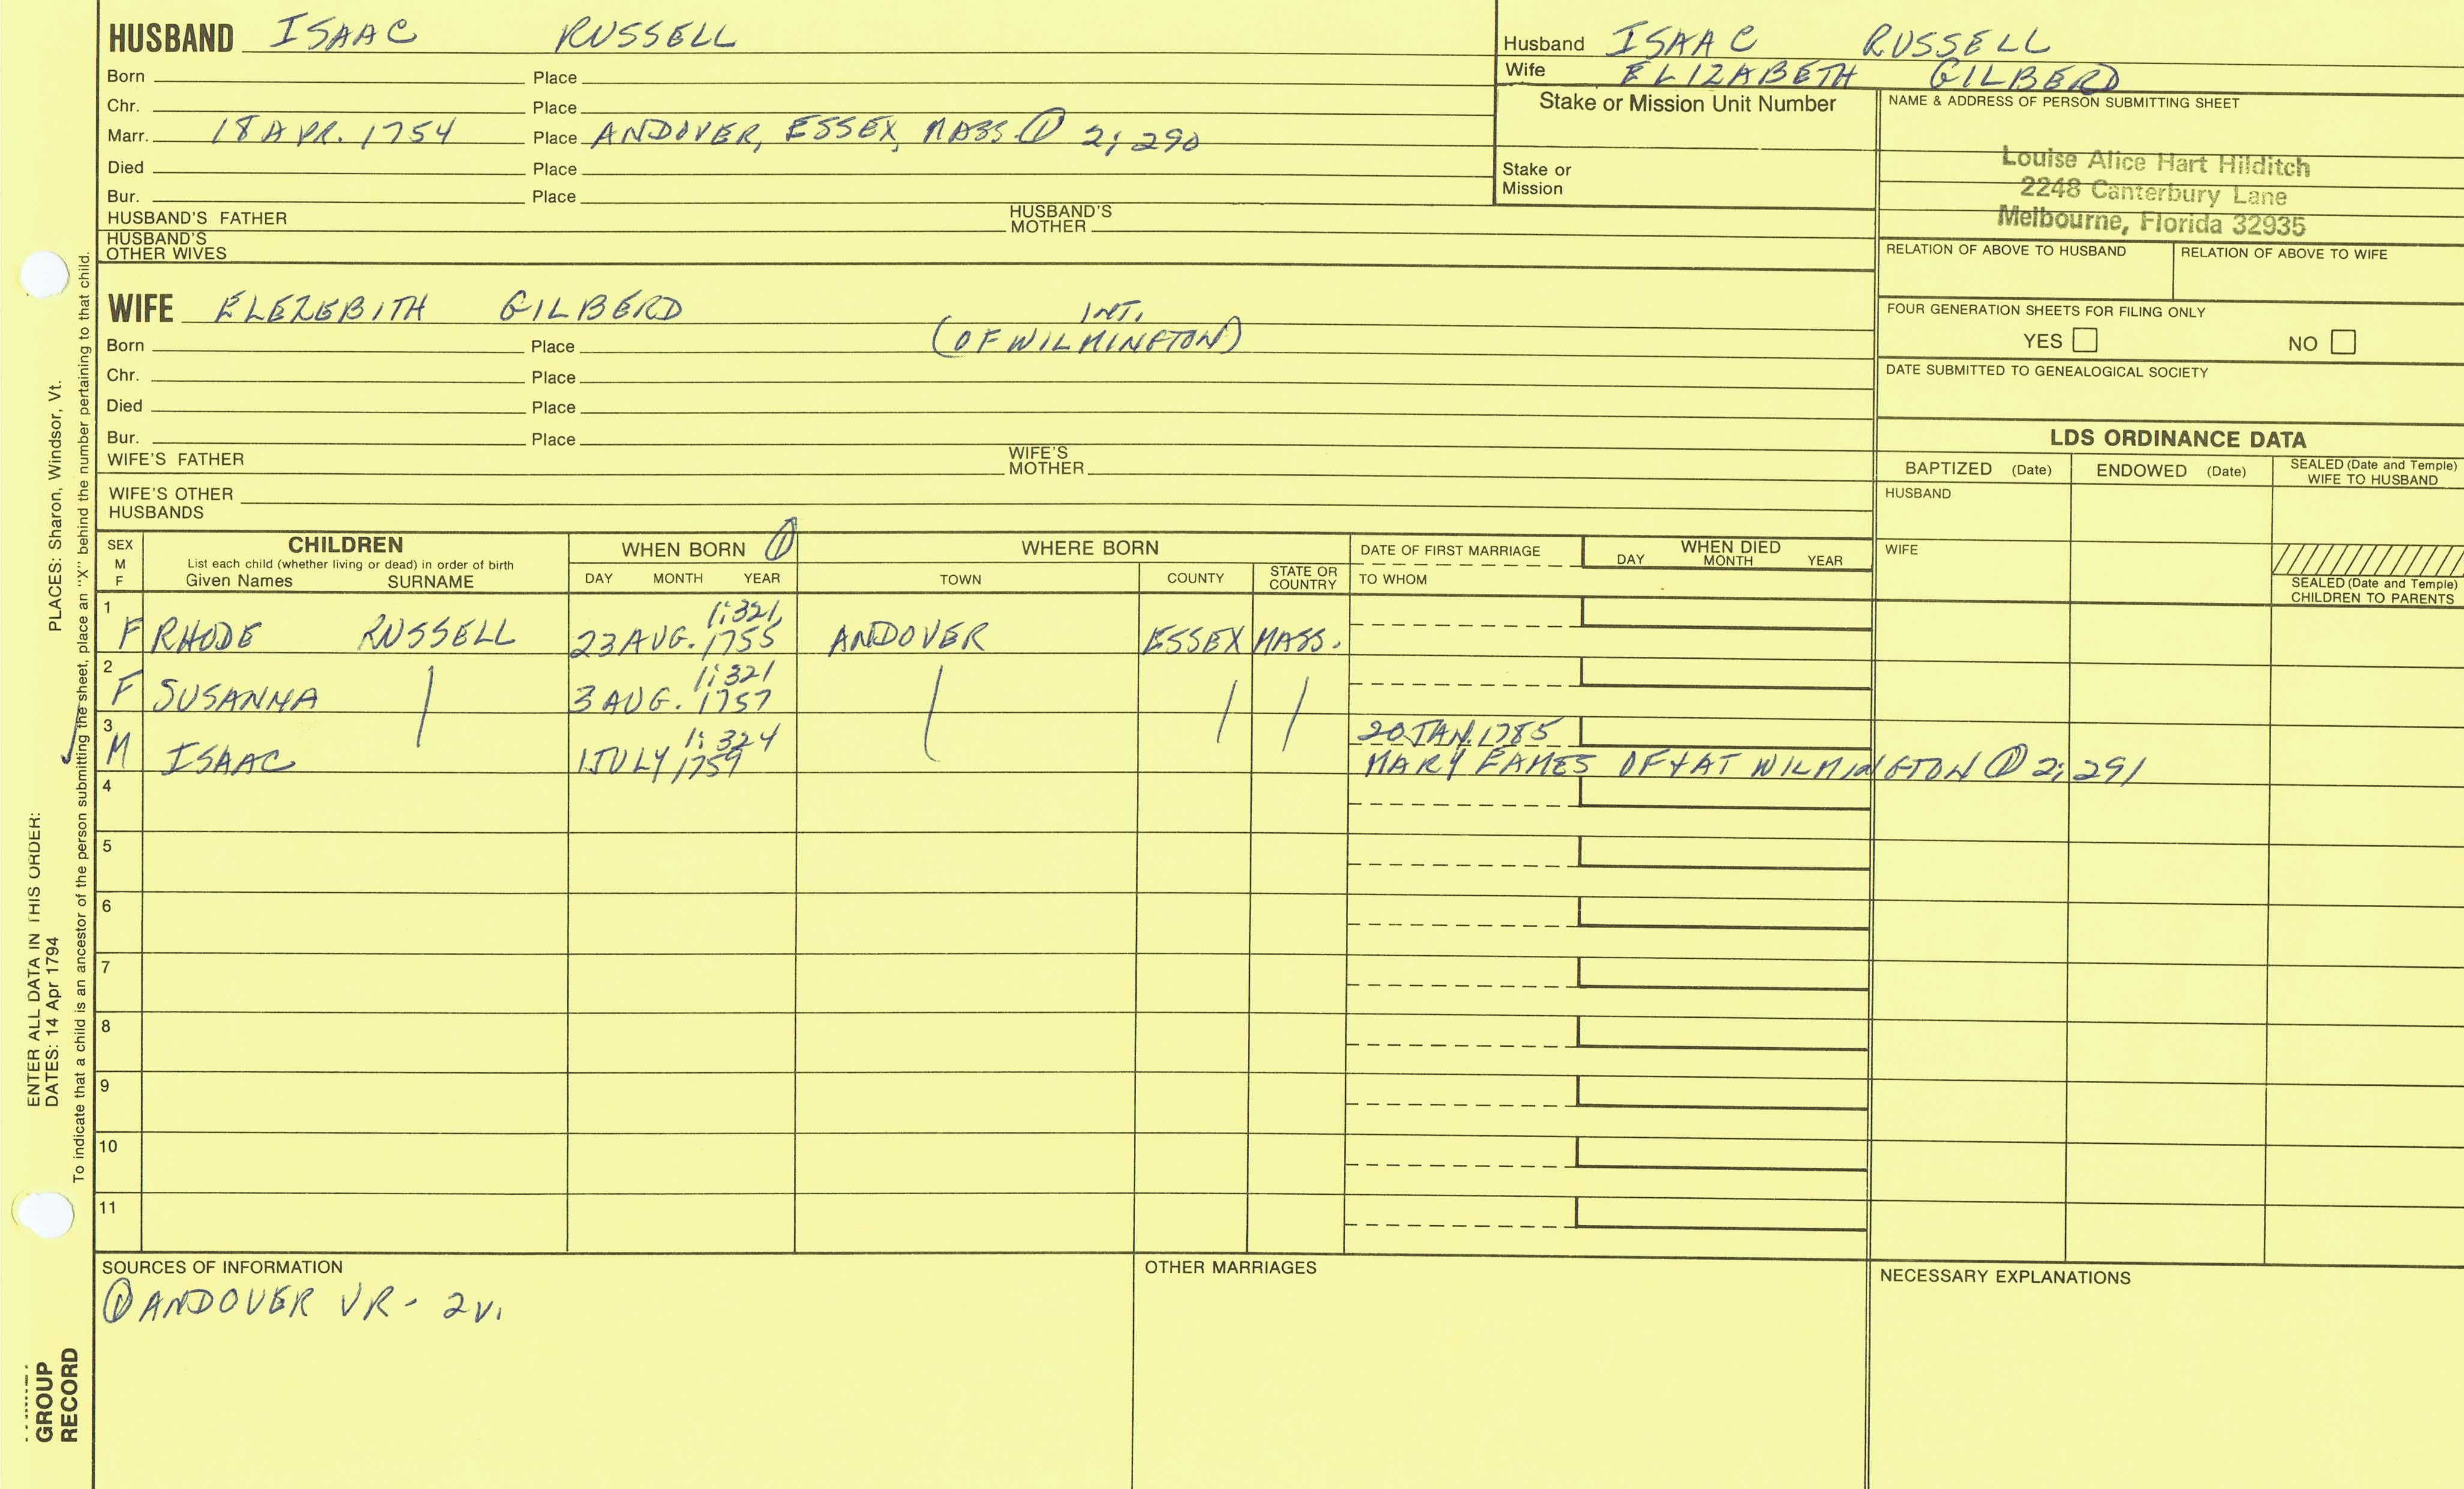 HUSBAND ISAAC RUSSELL
Born Place
Chr. Place
Marr. 18 APR. 1754 Place ANDOVER, ESSEX, MASS. ① 2; 290
Died Place
Bur. Place
HUSBAND'S FATHER HUSBAND'S MOTHER
HUSBAND'S OTHER WIVES
Husband ISAAC RUSSELL
Wife ELIZABETH GILBERD
Stake or Mission Unit Number
Stake or Mission
NAME & ADDRESS OF PERSON SUBMITTING SHEET
Louise Alice Hart Hilditch
2248 Canterbury Lane
Melbourne, Florida 32935
RELATION OF ABOVE TO HUSBAND RELATION OF ABOVE TO WIFE
FOUR GENERATION SHEETS FOR FILING ONLY
YES NO
DATE SUBMITTED TO GENEALOGICAL SOCIETY
WIFE ELEZEBITH GILBERD INT.
(OF WILMINGTON)
Born Place
Chr. Place
Died Place
Bur. Place
WIFE'S FATHER WIFE'S MOTHER
WIFE'S OTHER HUSBANDS
LDS ORDINANCE DATA
BAPTIZED (Date) ENDOWED (Date) SEALED (Date and Temple) WIFE TO HUSBAND
HUSBAND
WIFE
SEALED (Date and Temple) CHILDREN TO PARENTS
SEX M F
CHILDREN
List each child (whether living or dead) in order of birth
Given Names SURNAME
WHEN BORN ①
DAY MONTH YEAR
WHERE BORN
TOWN COUNTY STATE OR COUNTRY
DATE OF FIRST MARRIAGE
TO WHOM
WHEN DIED
DAY MONTH YEAR
1 1:321
F RHODE RUSSELL 23 AUG. 1755 ANDOVER ESSEX MASS.
2 1:321
F SUSANNA 3 AUG. 1757
3 1:324 20 JAN. 1785
M ISAAC 1 JULY 1759 MARY EAMES OF & AT WILMINGTON ① 2; 291
4
5
6
7
8
9
10
11
SOURCES OF INFORMATION
① ANDOVER VR - 2v.
OTHER MARRIAGES
NECESSARY EXPLANATIONS
ENTER ALL DATA IN THIS ORDER:
DATES: 14 Apr 1794 PLACES: Sharon, Windsor, Vt.
To indicate that a child is an ancestor of the person submitting the sheet, place an "X" behind the number pertaining to that child.
GROUP
RECORD